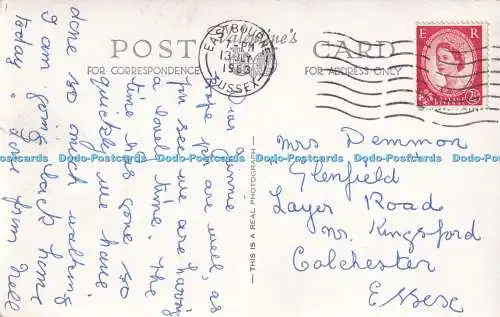 POST CARD
Valentine's
FOR CORRESPONDENCE
FOR ADDRESS ONLY
EASTBOURNE
7-PM
13 JLY
SUSSEX
E R
POSTAGE
REVENUE
2½
THIS IS A REAL PHOTOGRAPH
Dear
Hope you are well, as
you see we are having
a lovely time. The
time has gone so
quickly we have
done so much walking
I am going back home
today. Love from Nell
Mrs Demmon
Glenfield
Layer Road
nr. Kingsford
Colchester
Essex
Dodo-Postcards Dodo-Postcards Dodo-Postcards Dodo-Postcards Dodo-Postcards Dodo-Postcards